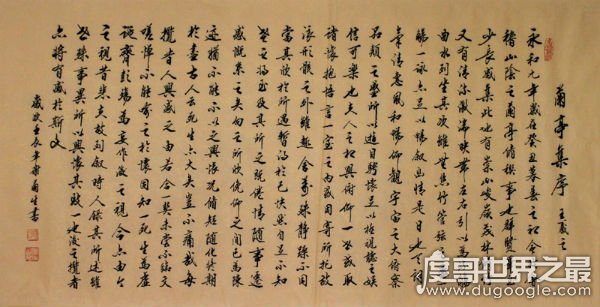 蘭亭集序 王羲之
永和九年歲在癸丑暮春之初會於會
稽山陰之蘭亭脩禊事也群賢畢至
少長咸集此地有崇山峻嶺茂林脩竹
又有清流激湍映帶左右引以為流觴
曲水列坐其次雖無絲竹管弦之盛一
觴一詠亦足以暢敘幽情是日也天朗
氣清惠風和暢仰觀宇宙之大俯察
品類之盛所以遊目騁懷足以極視聽之娛
信可樂也夫人之相與俯仰一世或取
諸懷抱悟言一室之內或因寄所託放
浪形骸之外雖趣舍萬殊靜躁不同
當其欣於所遇暫得於己快然自足不知
老之將至及其所之既倦情隨事遷
感慨係之矣向之所欣俯仰之間已為陳
跡猶不能不以之興懷況脩短隨化終期
於盡古人云死生亦大矣豈不痛哉每
攬昔人興感之由若合一契未嘗不臨文
嗟悼不能喻之於懷固知一死生為虛
誕齊彭殤為妄作後之視今亦由今
之視昔悲夫故列敘時人錄其所述雖
世殊事異所以興懷其致一也後之攬者
亦將有感於斯文
歲次壬辰年 書
度哥世界之最
www.dugoogle.com